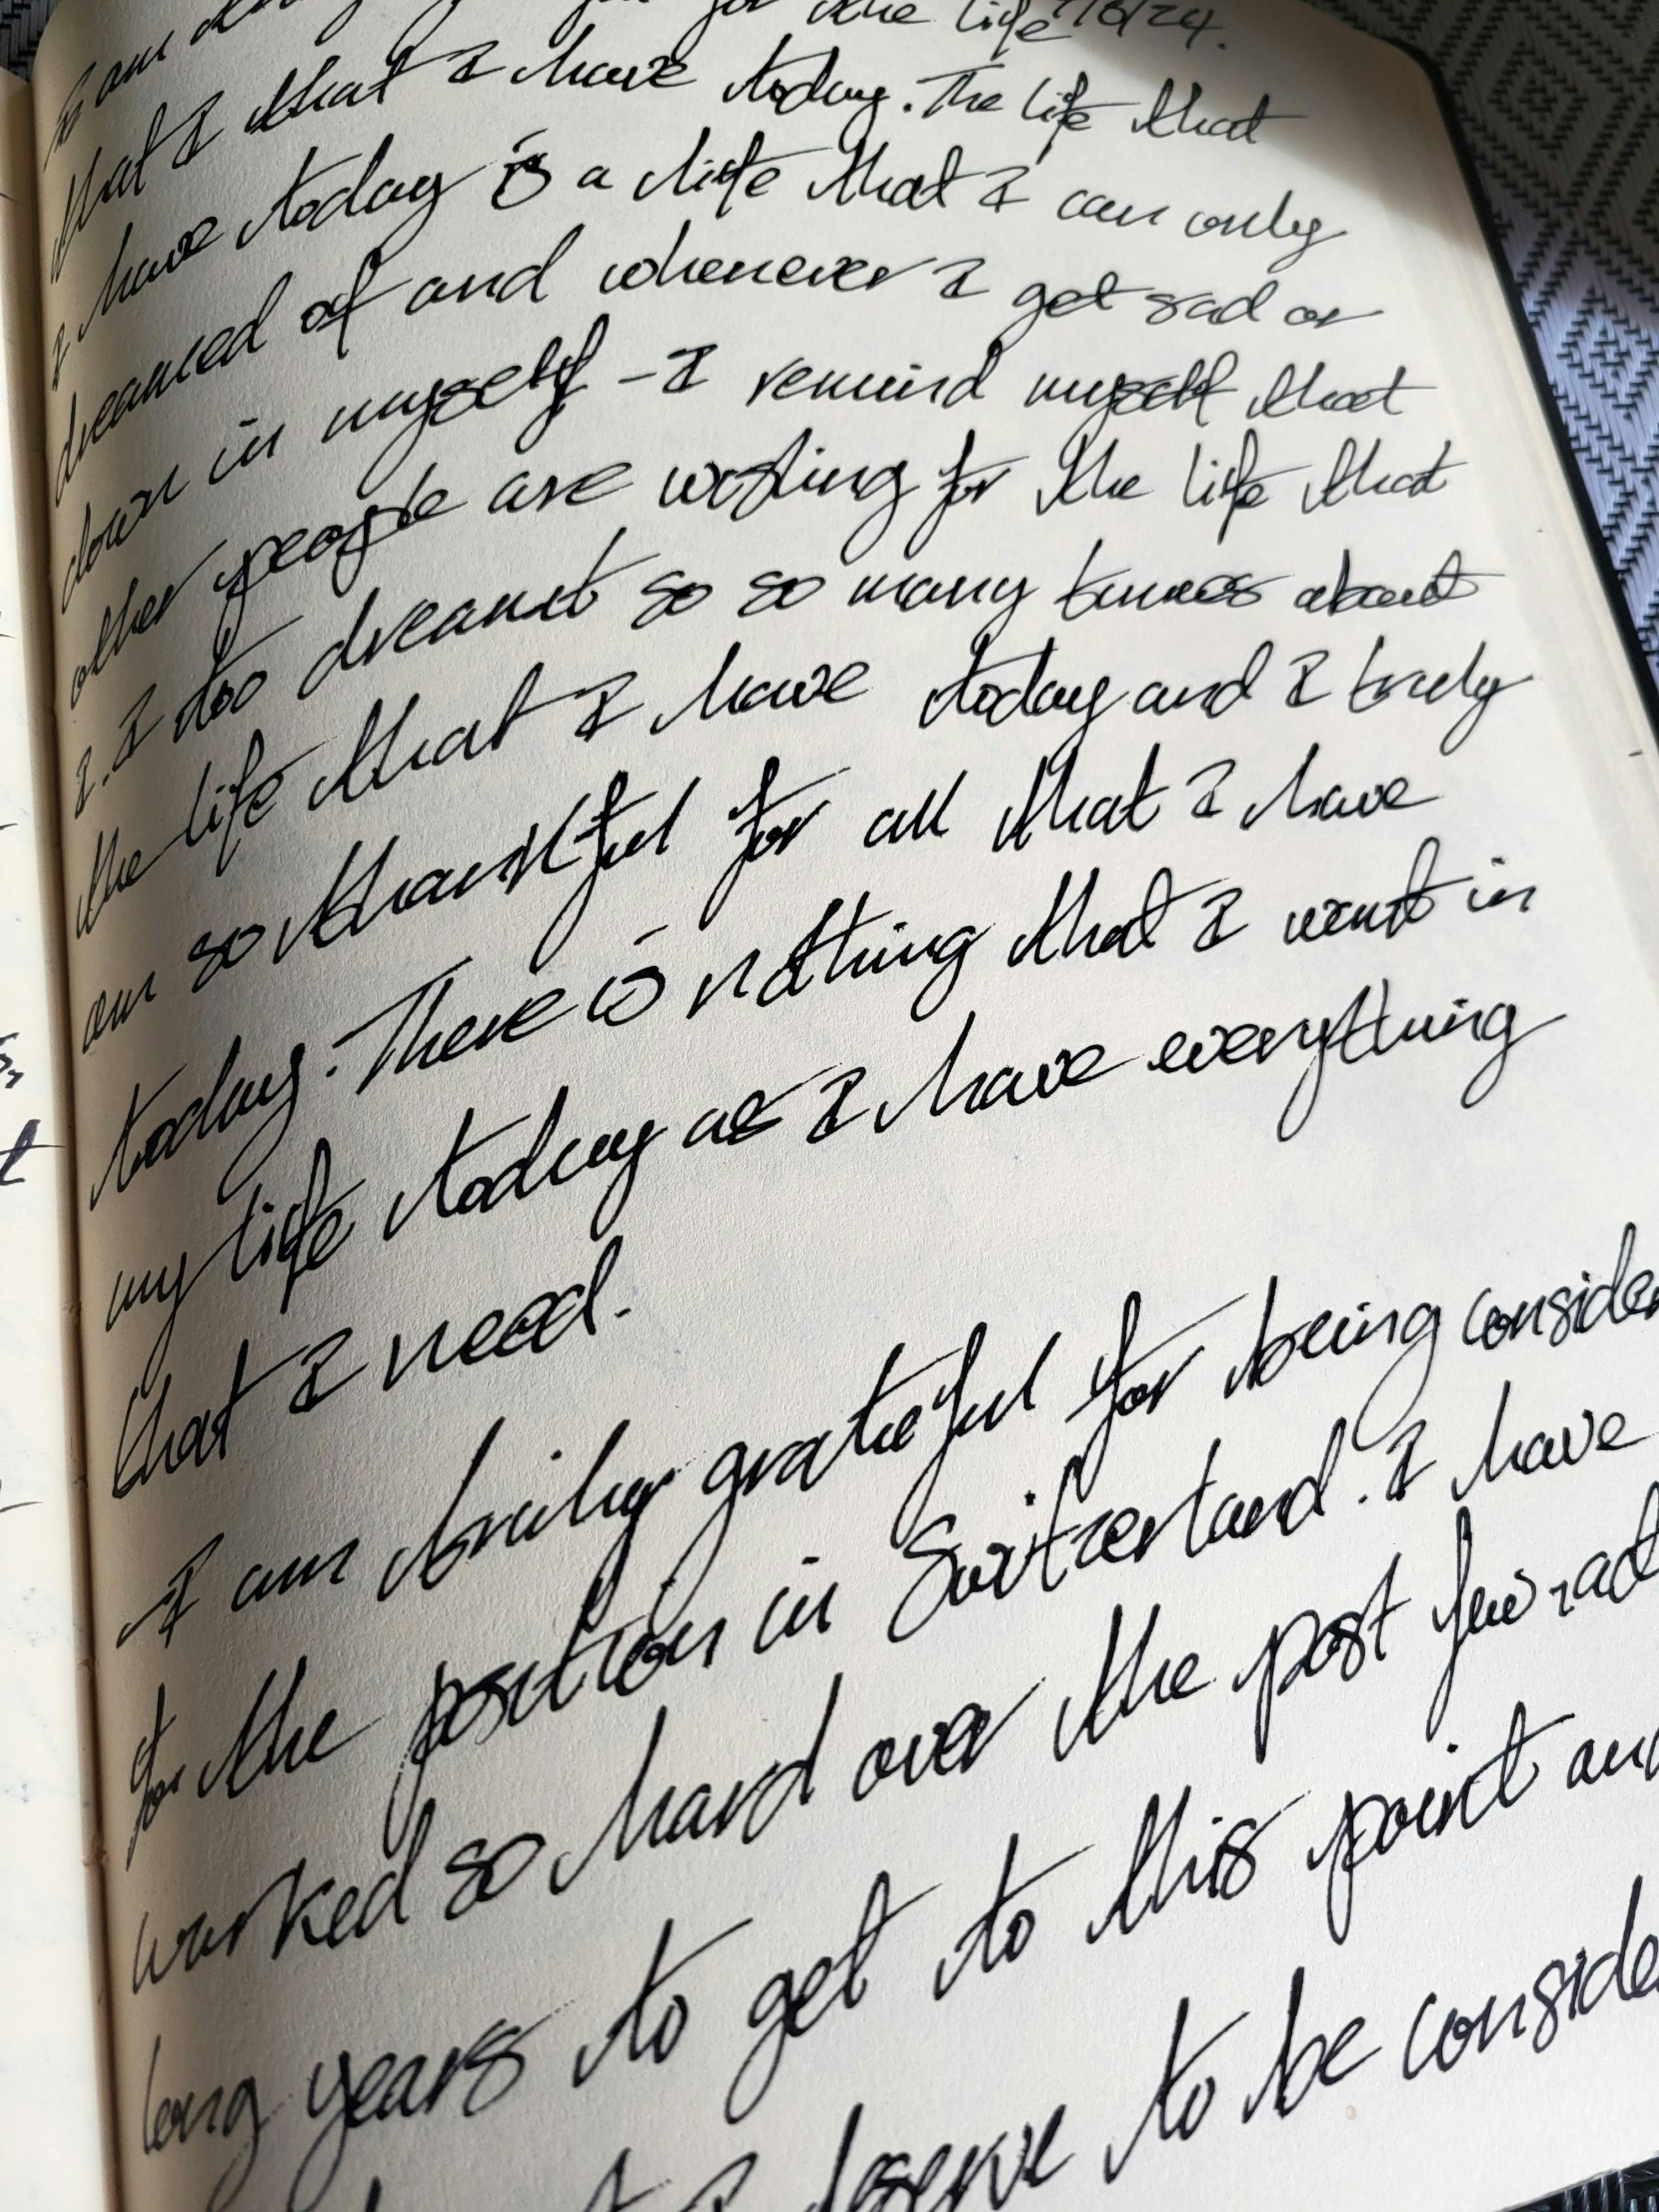 I am for the life 7/6/24.
that I that I have today. The life that
I have today is a life that I can only
dreamed of and whenever I get sad or
down in myself - I remind myself that
other people are wishing for the life that
I. I too dreamt so so many times about
the life that I have today and I truly
am so thankful for all that I have
today. There is nothing that I want in
my life today as I have everything
that I need.
I am truly grateful for being consider
for the position in Switzerland. I have
worked so hard over the past few rad
long years to get to this point an
I deserve to be conside